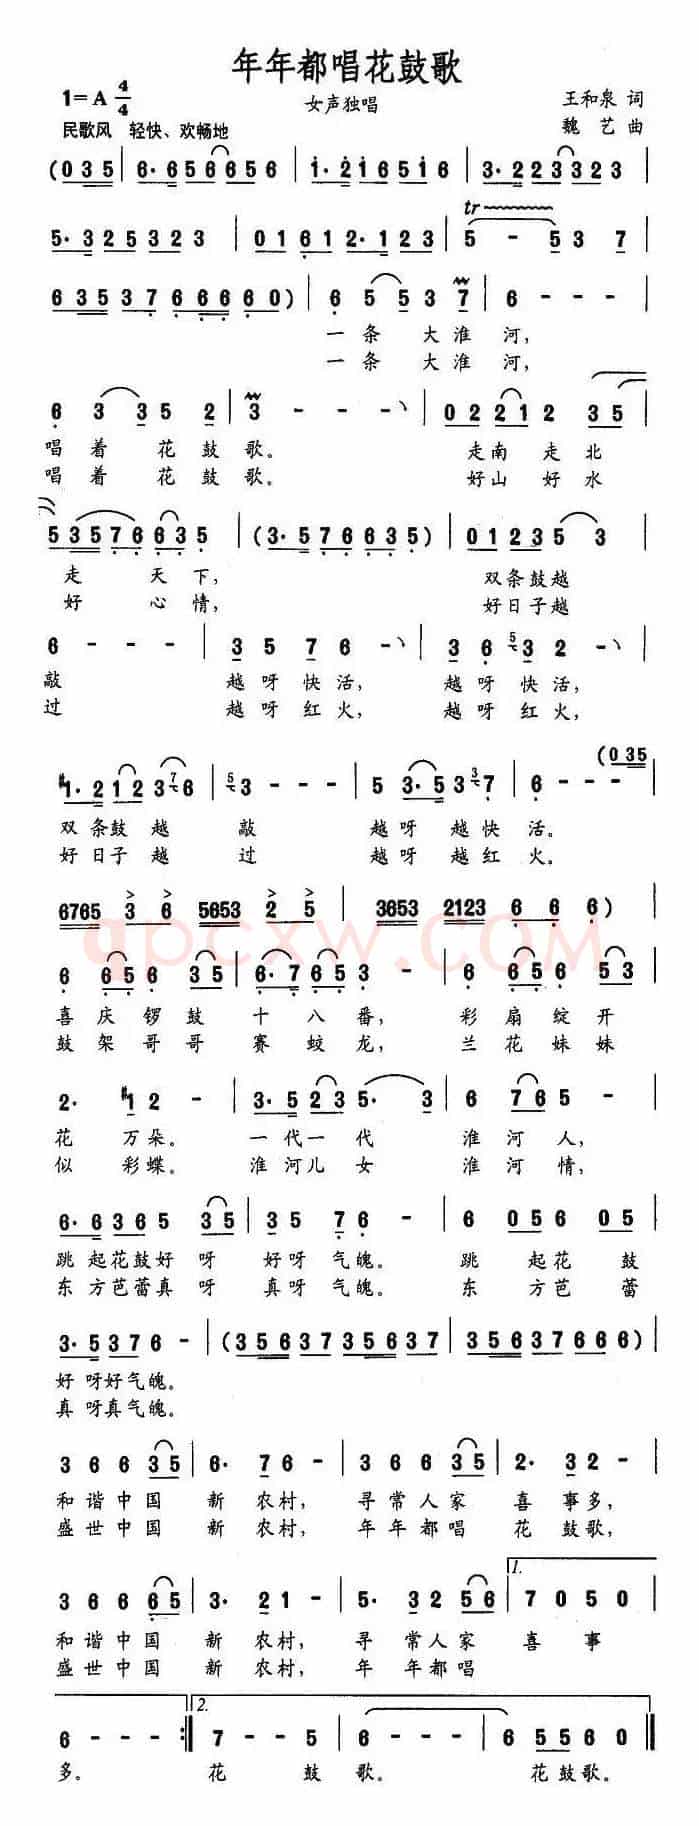 年年都唱花鼓歌
1=A 4/4
女声独唱
王和泉 词
民歌风 轻快、欢畅地
魏艺 曲
(0 3 5 | 6· 6 5 6 6 6 5 6 | 1· 2 1 6 5 1 6 | 3· 2 2 3 3 2 3 |
5· 3 2 5 3 2 3 | 0 1 6 1 2· 1 2 3 | tr 5 - 5 3 7 |
6 3 5 3 7 6 6 6 6 0) | 6 5 5 3 7 | 6 - - - |
一条 大淮 河,
一条 大淮 河,
6 3 3 5 2 | 3 - - - | 0 2 2 1 2 3 5 |
唱着 花鼓 歌。 走南 走北
唱着 花鼓 歌。 好山 好水
5 3 5 7 6 6 3 5 | (3· 5 7 6 6 3 5) | 0 1 2 3 5 3 |
走 天下, 双条鼓越
好 心情, 好日子越
6 - - - | 3 5 7 6 - | 3 6 5 3 2 - |
敲 越呀快活, 越呀快活,
过 越呀红火, 越呀红火,
(0 3 5
#1· 2 1 2 3 7 6 | 5 3 - - - | 5 3· 5 3 3 7 | 6 - - -
双条鼓越 敲 越呀 越快 活。
好日子越 过 越呀 越红 火。
6765 3 6 5653 2 5 | 3653 2123 6 6 6) |
qpcxw.COM
6 6 5 6 3 5 | 6· 7 6 5 3 - | 6 6 5 6 5 3 |
喜庆锣鼓 十八番, 彩扇绽开
鼓架哥哥 赛蛟龙, 兰花妹妹
2· #1 2 - | 3· 5 2 3 5· 3 | 6 7 6 5 - |
花 万朵。 一代一代 淮河人,
似 彩蝶。 淮河儿女 淮河情,
6· 6 3 6 5 3 5 | 3 5 7 6 - | 6 0 5 6 0 5 |
跳起花鼓好呀 好呀气魄。 跳起花鼓
东方芭蕾真呀 真呀气魄。 东方芭蕾
3· 5 3 7 6 - | (3 5 6 3 7 3 5 6 3 7 | 3 5 6 3 7 6 6 6) |
好呀好气魄。
真呀真气魄。
3 6 6 3 5 | 6· 7 6 - | 3 6 6 3 5 | 2· 3 2 - |
和谐中国 新农村, 寻常人家 喜事多,
盛世中国 新农村, 年年都唱 花鼓歌,
1.
3 6 6 6 5 | 3· 2 1 - | 5· 3 2 5 6 | 7 0 5 0 |
和谐中国 新农村, 寻常人家 喜事
盛世中国 新农村, 年年都唱
2.
6 - - - :| 7 - - 5 | 6 - - - | 6 5 5 6 0 ‖
多。 花鼓歌。 花鼓歌。